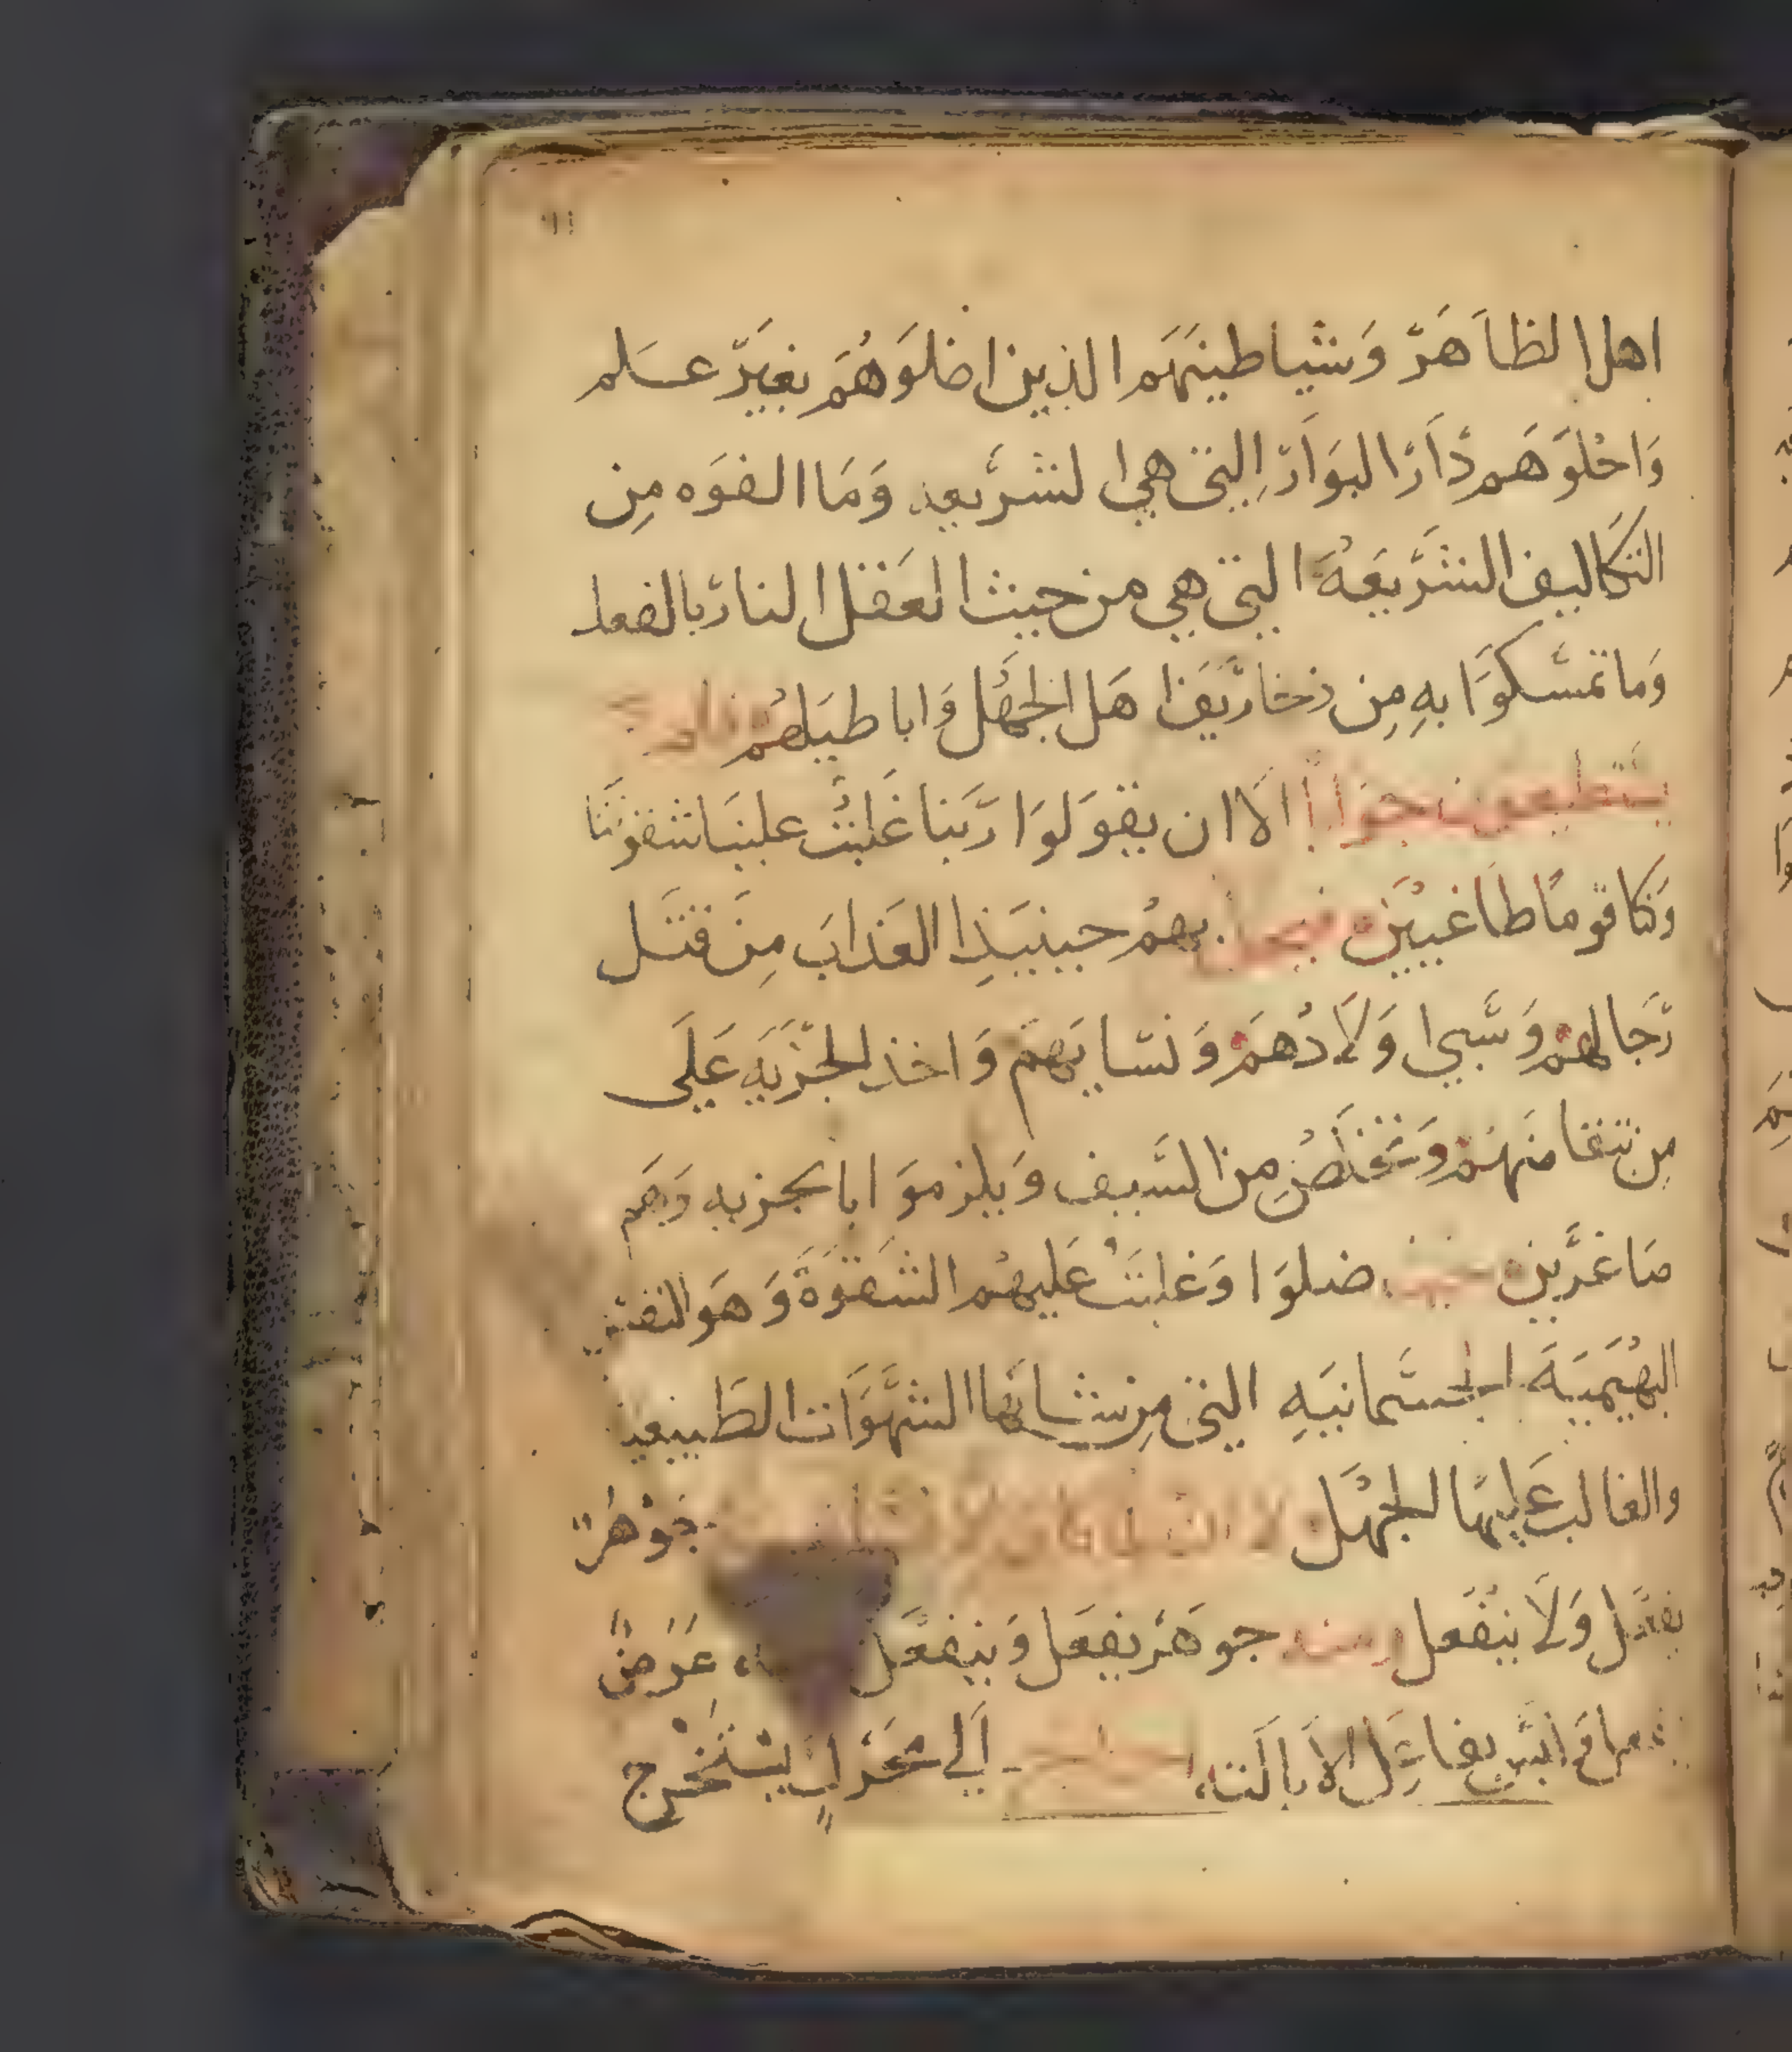 ١١
اهل الظاهر وشياطينهم الذين اضلوهم بغير علم
واحلوهم دار البوار التي هي الشريعه وما الفوه من
التكاليف الشريعة التي هي من حيث العقل النار بالفعل
وما تمسكوا به من زخاريف اهل الجهل واباطيلهم فلم
يستطيعون جوابا الا ان يقولوا ربنا غلبت علينا شقوتنا
وكنا قوما طاغيين بهم حينيذ العذاب من قتل
رجالهم وسبي اولادهم ونسايهم واخذ الجزيه على
من تبقا منهم وتخلص من السيف ويلزموا بالجزيه وهم
صاغرين ضلوا وغلبت عليهم الشقوة وهو النفس
البهيمية الجسمانيه التي من شانها الشهوات الطبيعيه
والغالب عليها الجهل جوهر
يفعل ولا ينفعل ومنه جوهر يفعل وينفعل عرض
ليس بفاعل الا بالته الي محرك يستخرج